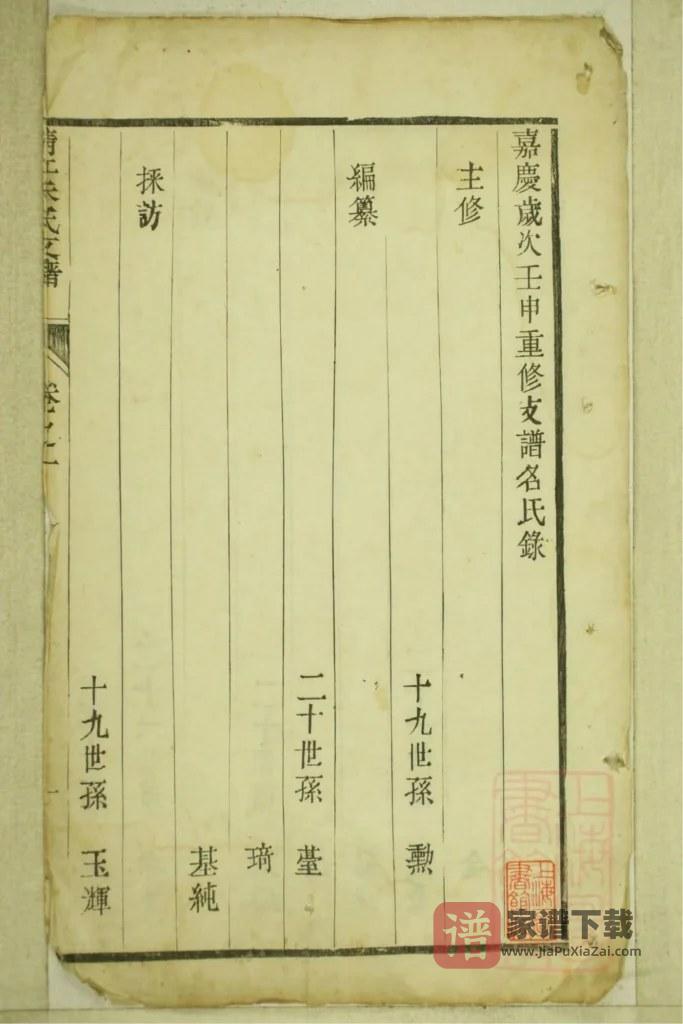 嘉慶歲次壬申重修支譜名氏錄
主修
十九世孫 勲
編纂
二十世孫 薹
琦
基純
採訪
十九世孫 玉輝
氏支譜
卷之一
上海
書館
谱
家谱下载
www.JiaPuXiaZai.com